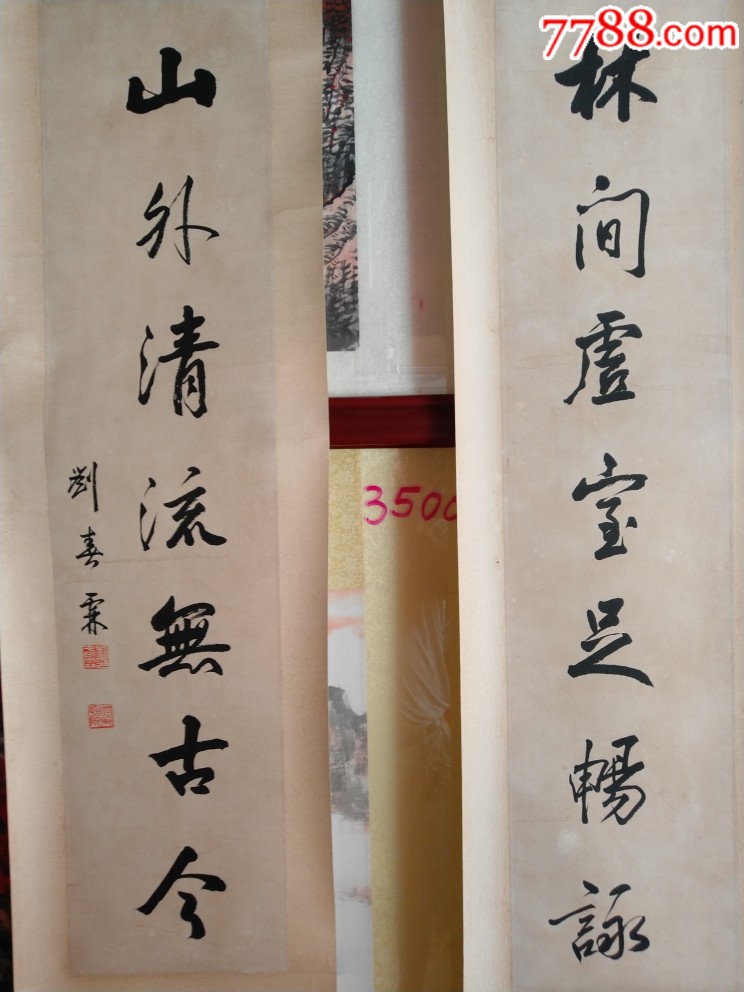 7788.com
林间虚室足暢詠
山外清流無古今
劉春霖
3500